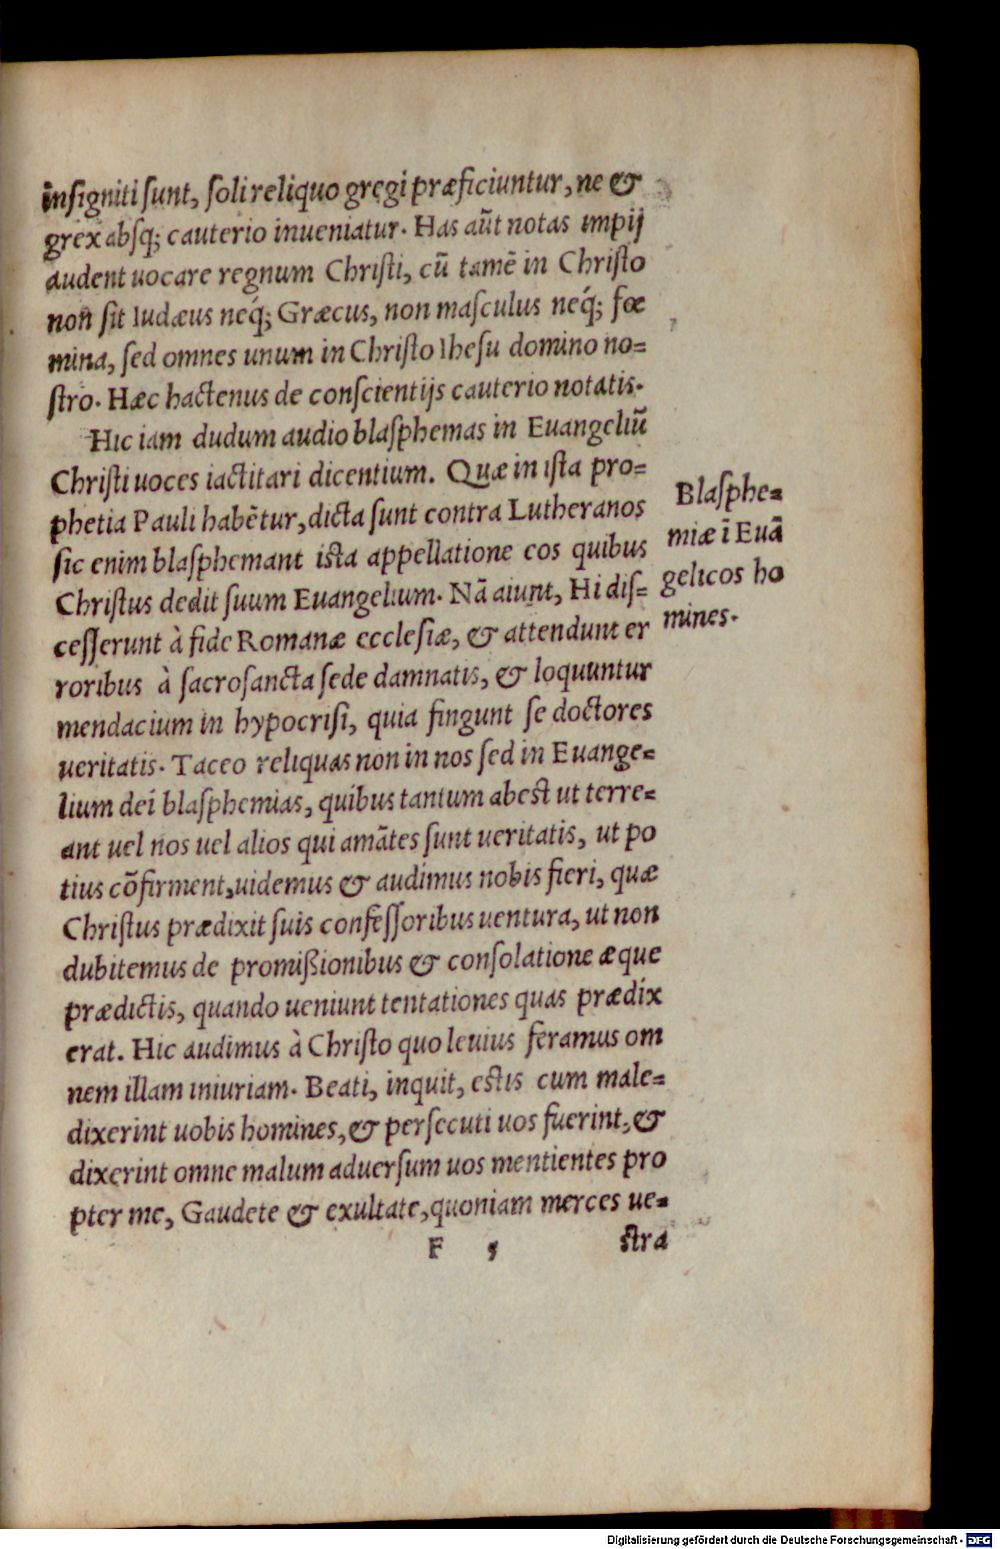 inſigniti ſunt, ſoli reliquo gregi præficiuntur, ne &
grex abſq; cauterio inueniatur. Has aūt notas impij
audent uocare regnum Chriſti, cū tamē in Chriſto
non ſit Iudæus neq́; Græcus, non maſculus neq́; fœ
mina, ſed omnes unum in Chriſto Iheſu domino no=
ſtro. Hæc hactenus de conſcientijs cauterio notatis.
Hic iam dudum audio blaſphemas in Euangeliū
Chriſti uoces iactitari dicentium. Quæ in iſta pro=
phetia Pauli habētur, dicta ſunt contra Lutheranos
ſic enim blaſphemant iſta appellatione eos quibus
Chriſtus dedit ſuum Euangelium. Nā aiunt, Hi diſ=
ceſſerunt à fide Romanæ eccleſiæ, & attendunt er
roribus à ſacroſancta ſede damnatis, & loquuntur
mendacium in hypocriſi, quia fingunt ſe doctores
ueritatis. Taceo reliquas non in nos ſed in Euange=
lium dei blaſphemias, quibus tantum abeſt ut terre=
ant uel nos uel alios qui amātes ſunt ueritatis, ut po
tius cōfirment, uidemus & audimus nobis fieri, quæ
Chriſtus prædixit ſuis confeſſoribus uentura, ut non
dubitemus de promißionibus & conſolatione æque
prædictis, quando ueniunt tentationes quas prædix
erat. Hic audimus à Chriſto quo leuius feramus om
nem illam iniuriam. Beati, inquit, eſtis cum male=
dixerint uobis homines, & perſecuti uos fuerint, &
dixerint omne malum aduerſum uos mentientes pro
pter me, Gaudete & exultate, quoniam merces ue=
F 5 ſtra
Blaſphe=
miæ ī Euā
gelicos ho
mines.
Digitalisierung gefördert durch die Deutsche Forschungsgemeinschaft - DFG